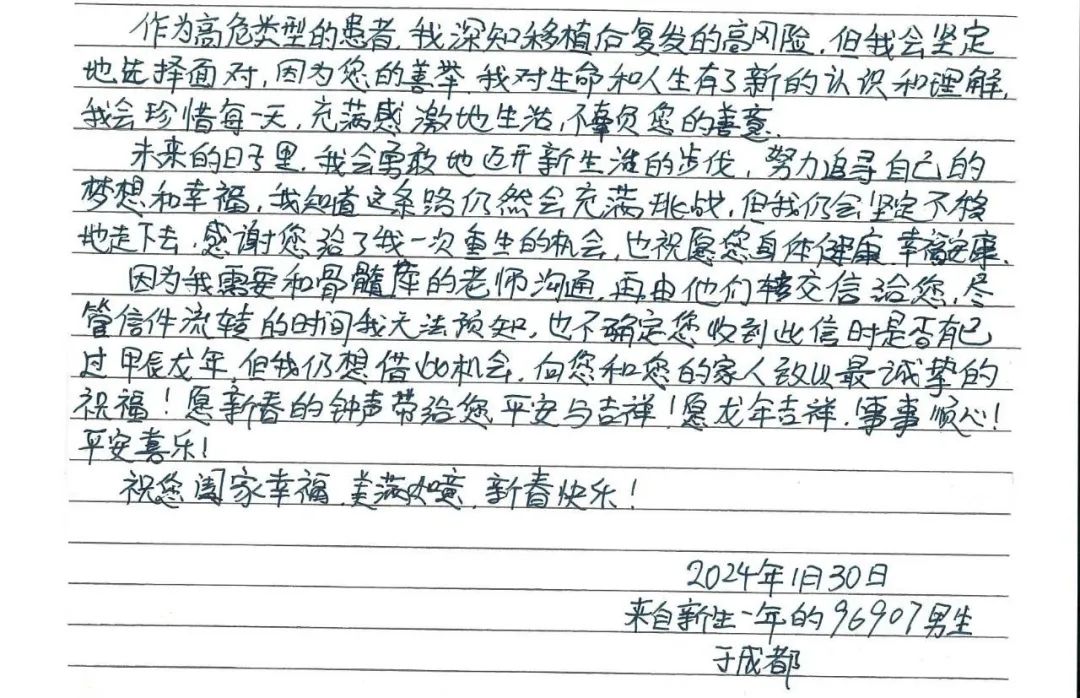 作为高危类型的患者,我深知移植后复发的高风险,但我会坚定
地选择面对,因为您的善举,我对生命和人生有了新的认识和理解,
我会珍惜每一天,充满感激地生活,不辜负您的善意.
未来的日子里,我会勇敢地迈开新生活的步伐,努力追寻自己的
梦想和幸福,我知道这条路仍然会充满挑战,但我仍会坚定不移
地走下去.感谢您给了我一次重生的机会,也祝愿您身体健康,幸福安康.
因为我需要和骨髓库的老师沟通,再由他们转交信给您,尽
管信件流转的时间我无法预知,也不确定您收到此信时是否有已
过甲辰龙年,但我仍想借此机会,向您和您的家人致以最诚挚的
祝福!愿新春的钟声带给您平安与吉祥!愿龙年吉祥,事事顺心!
平安喜乐!
祝您阖家幸福,美满如意,新春快乐!
2024年1月30日
来自新生一年的96907男生
于成都